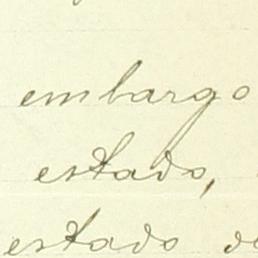 embargo
estado,
estado de